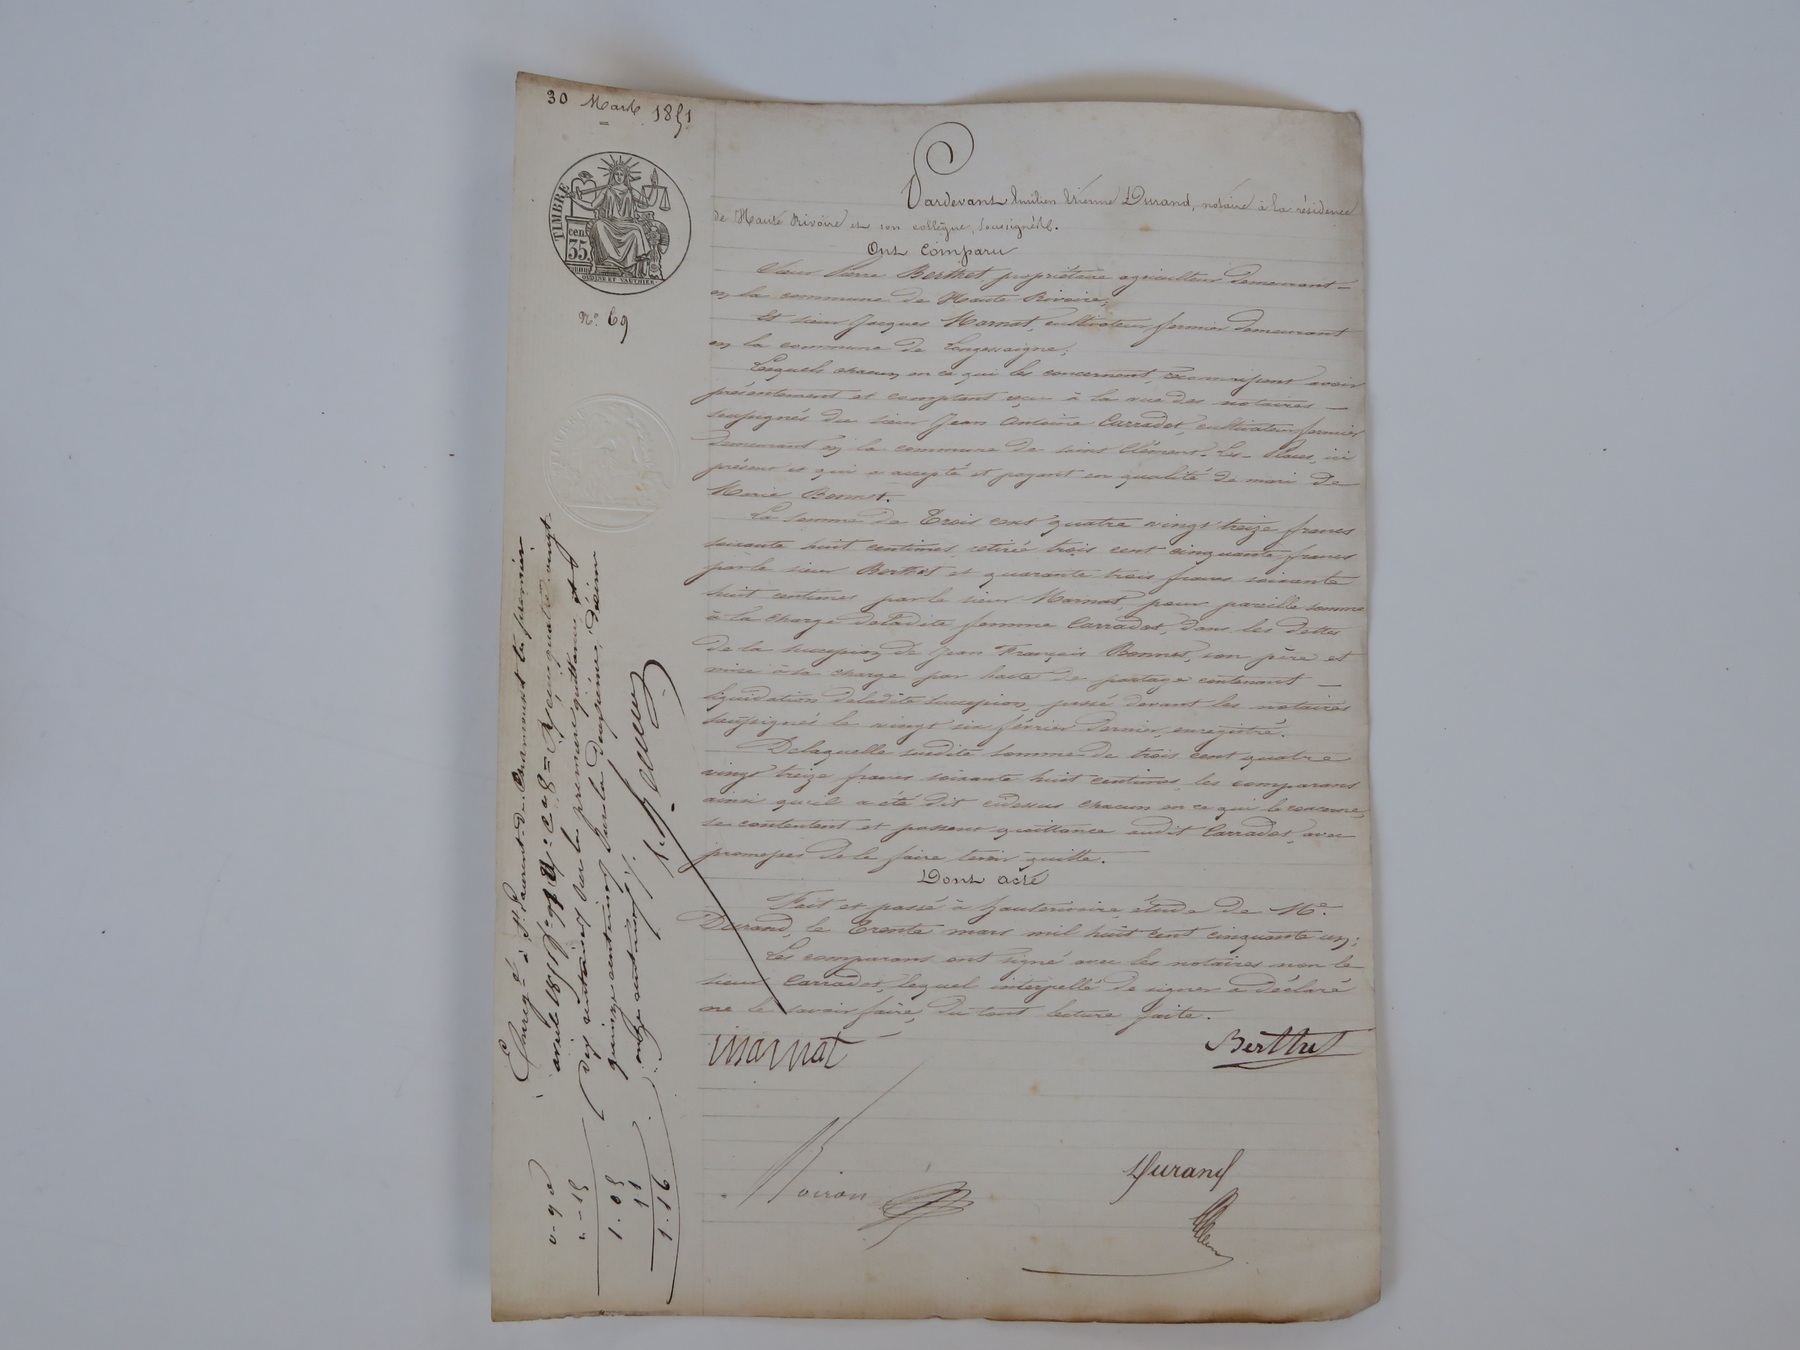 30 Mars 1851
TIMBRE
35 cen
N° 69
Pardevant Etienne Durand, notaire à la résidence
de Haute Rivoire et son collègue, soussignés.
Ont comparu
Sieur Pierre Berthet propriétaire agriculteur demeurant
en la commune de Haute Rivoire,
Et sieur Jacques Marnat, cultivateur fermier demeurant
en la commune de Longessaigne,
Lesquels chacun en ce qui les concernent, reconnaissent avoir
présentement et comptant reçu à la vue des notaires
soussignés du sieur Jean Antoine Carradot, cultivateur fermier
demeurant en la commune de saint Clément-les-Places, ici
présent et qui a accepté et payant en qualité de mari de
Marie Bonnet.
La somme de Trois cent quatre vingt treize francs
soixante huit centimes, retirée trois cent cinquante francs
par le sieur Berthet et quarante trois francs soixante
huit centimes par le sieur Marnat, pour pareille somme
à la charge de ladite femme Carradot, dans les dettes
de la succession de Jean François Bonnet, son père et
mise à sa charge par l'acte de partage contenant
liquidation de ladite succession, passé devant les notaires
soussignés le vingt six février dernier, enregistré.
De laquelle susdite somme de trois cent quatre
vingt treize francs soixante huit centimes, les comparans
ainsi qu'il a été dit cidessus chacun en ce qui le concerne,
se contentent et passent quittance audit Carradot, avec
promesses de le faire tenir quitte.
Dont acte
Fait et passé à hauterivoire, étude de Me
Durand, le Trente mars mil huit cent cinquante un;
Les comparans ont signé avec les notaires non le
sieur Carradot, lequel interpellé de signer a déclaré
ne le savoir faire, du tout lecture faite.
Marnat
Berthet
Durand
Noiron
Enreg. é à St. Laurent de Chamousset le premier
avril 1851
quinze centimes sur la deuxième, décime
onze centimes
1.05
11
1.16